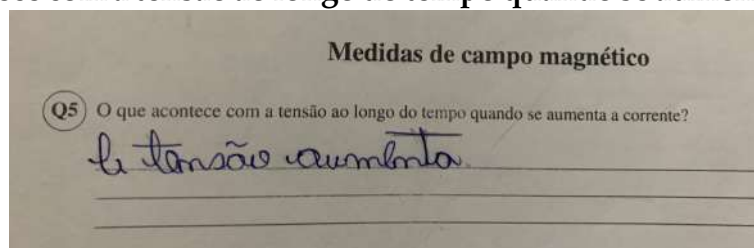 Medidas de campo magnético
Q5 O que acontece com a tensão ao longo do tempo quando se aumenta a corrente?
A tensão aumenta.